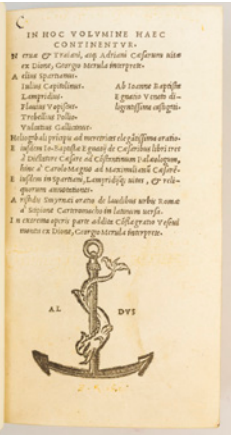 IN HOC VOLVMINE HAEC
CONTINENTVR.
Neruæ & Traiani, atq; Adriani Cæsarum uitæ
ex Dione, Georgio Merula interprete.
Aelius Spartianus.
Iulius Capitolinus. Ab Ioanne Baptista
Lampridius. Egnatio Veneto di-
Flauius Vopiscus. ligentissime castigati.
Trebellius Pollio.
Vulcatius Gallicanus.
Heliogabali principis ad meretrices elegantissima oratio.
Eiusdem Io. Baptistæ Egnatij de Cæsaribus libri tres
à Dictatore Cæsare ad Constantinum Palæologum,
hinc à Carolo Magno ad Maximilianum Cæsarē.
Eiusdem in Spartiani, Lampridijq; uitas, & reli-
quorum annotationes.
Aristidis Smyrnæi oratio de laudibus urbis Romæ
à Scipione Carteromacho in latinum uersa.
In extremo operis addita Conflagratio Veseui
montis ex Dione, Georgio Merula interprete.
AL DVS